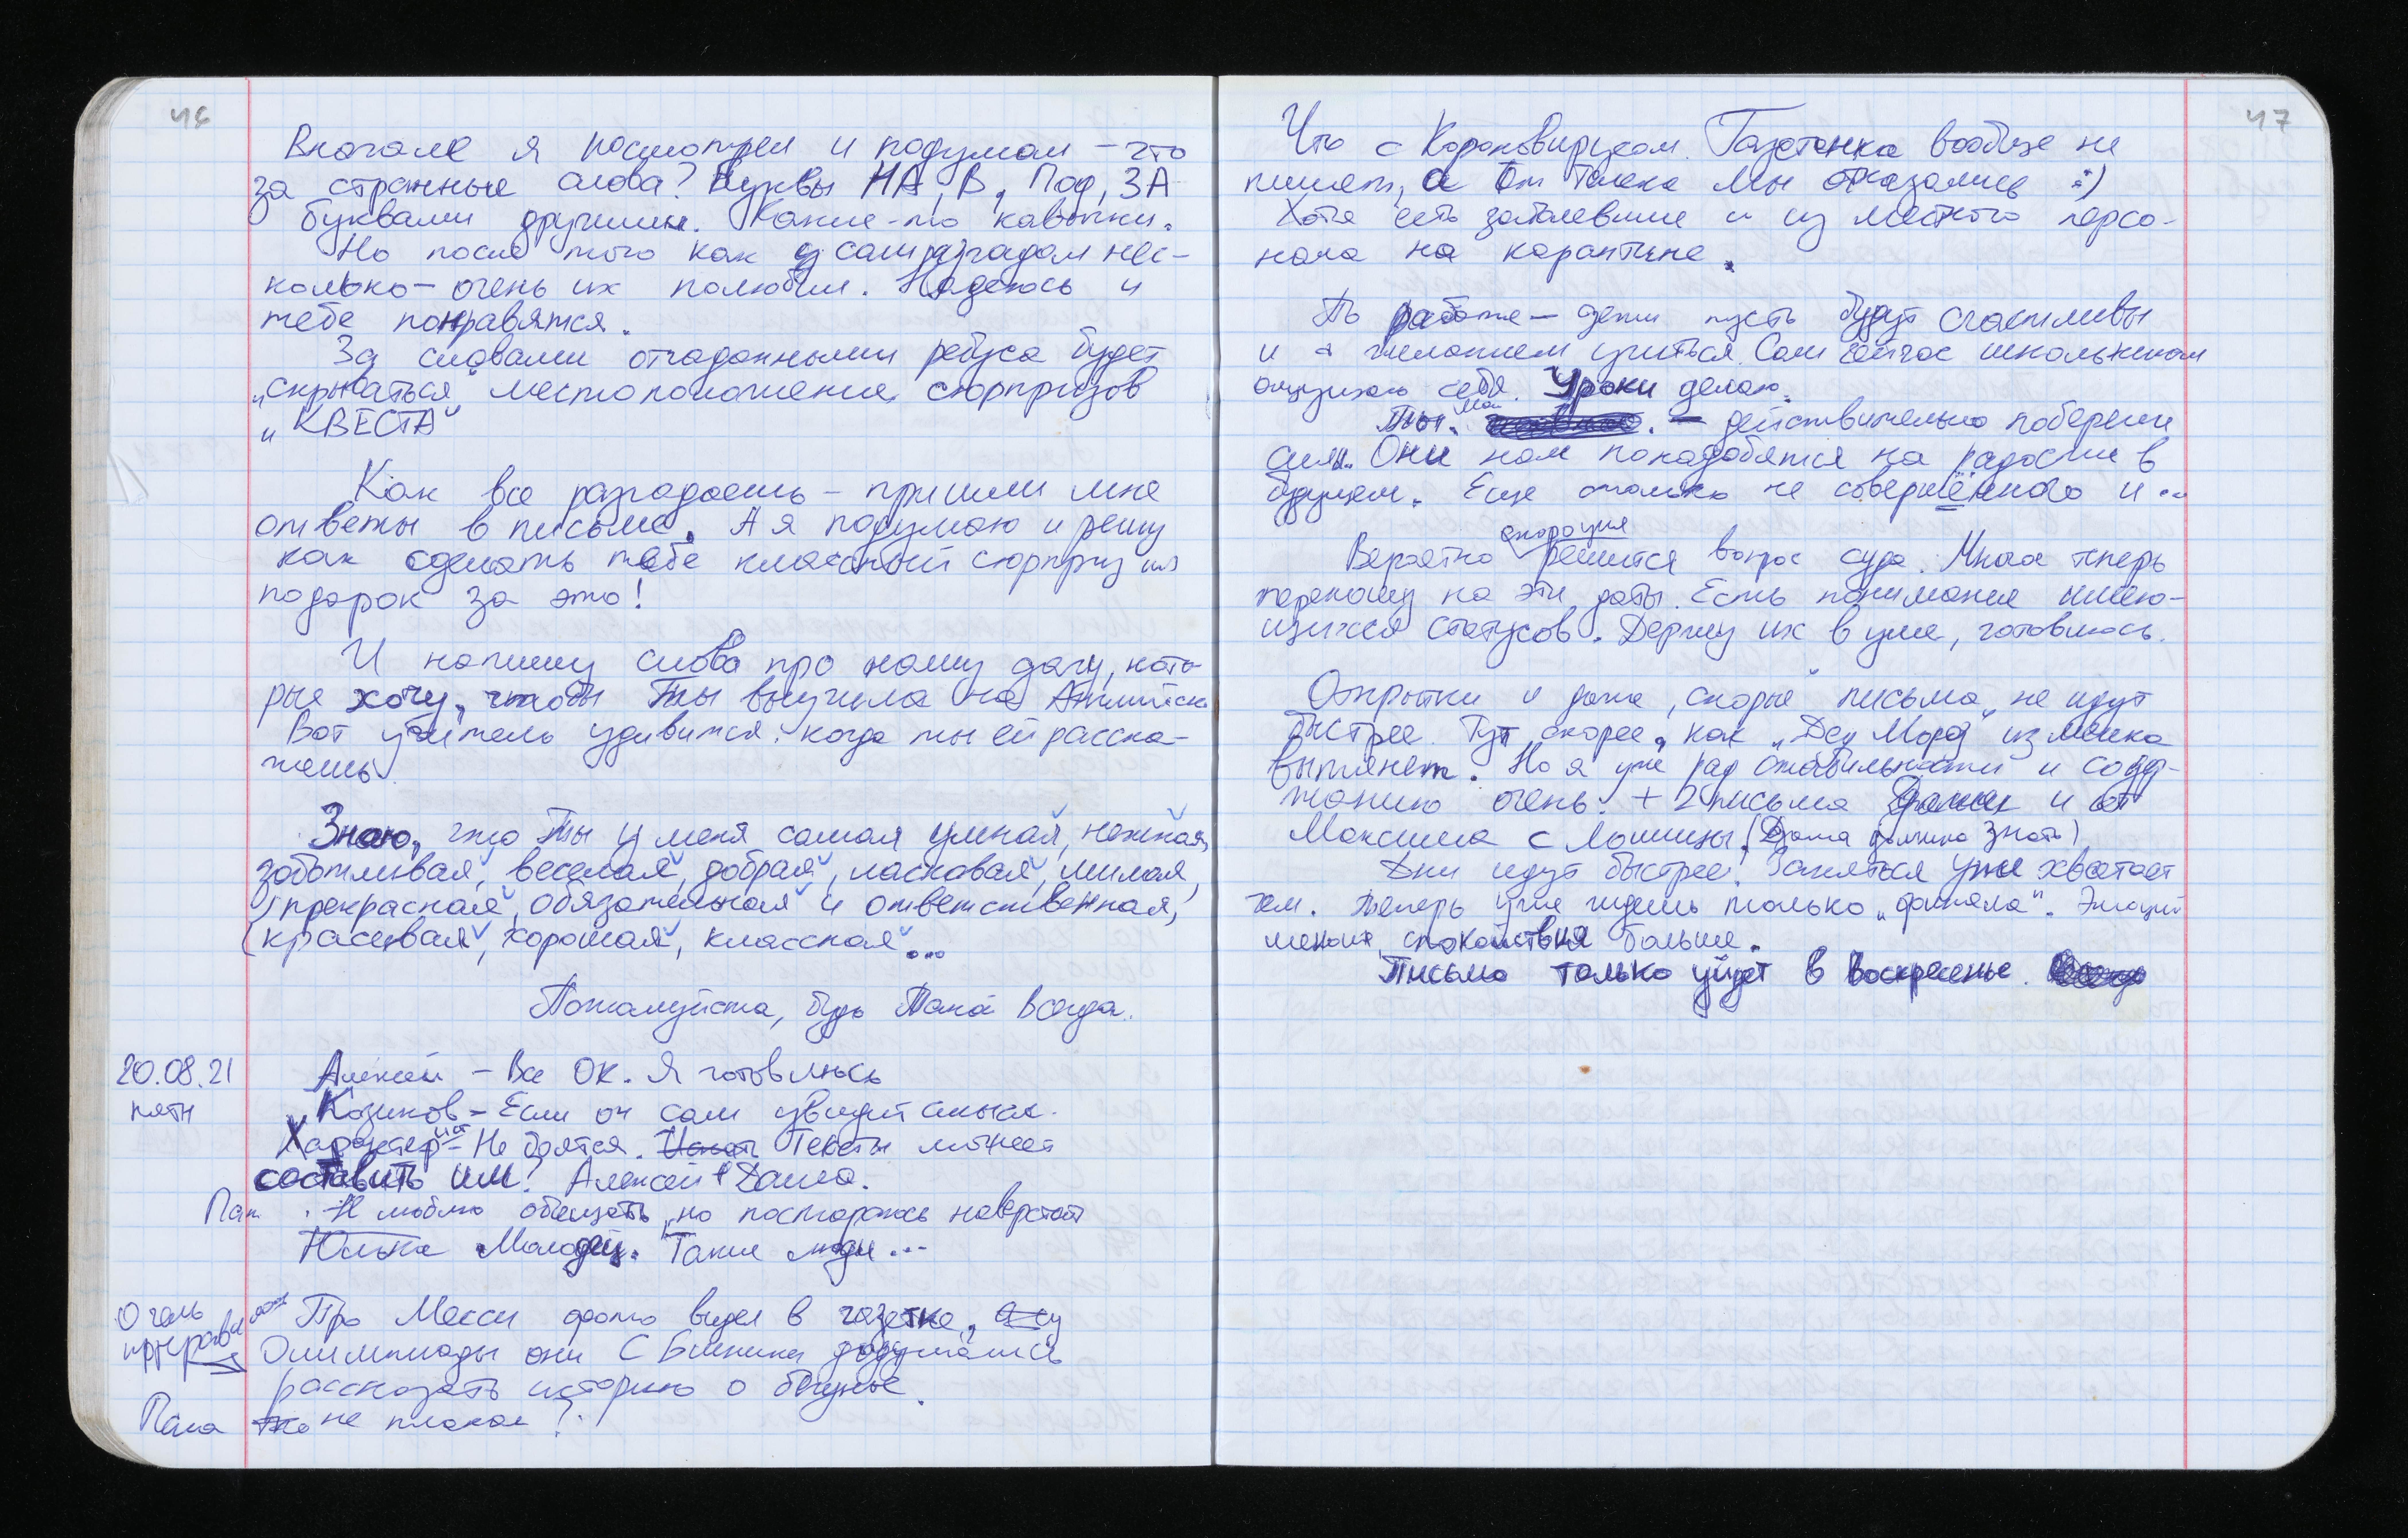 46
Вначале я посмотрел и подумал – что
за странные слова? Буквы НА, В, Под, ЗА
буквами другими. Какие-то кавычки.
Но после того как я сам разгадал нес-
колько – очень их полюбил. Надеюсь и
тебе понравятся.
За словами отгаданными ребуса будет
„скрываться" местоположение сюрпризов
„КВЕСТА"
Как все разгадаешь – пришли мне
ответы в письме. А я подумаю и решу
как сделать тебе классный сюрприз или
подарок за это!
И напишу слова про нашу дачу, кото
рые хочу, чтобы Ты выучила на Английск
Вот учитель удивится: когда ты ей расска-
жешь.
Знаю, что Ты у меня самая умная, нежная,
заботливая, веселая, добрая, ласковая, милая,
прекрасная, обязательная и ответственная,
красивая, хорошая, классная...
Пожалуйста, будь Такой всегда.
20.08.21
пятн
Алексей – Все Ок. Я готовлюсь
Козиков – Если он сам увидит смысл.
Характер – Не боятся. Тексты может
составить им? Алексей + Даша.
Пап. Не люблю обещать, но постараюсь наверстать
Юлька Молодец. Такие люди...
Очень
нравил
Про Месси фото видел в газетке,
Олимпиады они с Блинки додумались
рассказать историю о бегунье.
Папа не плакал?
47
Что с Короновирусом. Газетенка вообще не
пишет, а От Тиека Мы отказались :)
Хотя есть заболевшие и из местного персо-
нала на карантине.
По работе – дети пусть будут счастливы
и с желанием учиться. Сам сейчас школьником
ощущаю себя. Уроки делаю.
Ты. Мой – действительно береги
силы. Они нам понадобятся на радости в
будущем. Еще столько не совершённого и...
скорация
Вероятно решится вопрос суда. Многое теперь
переношу на эти даты. Есть понимание имею-
щихся статусов. Держу их в уме, готовлюсь.
Открытки и даже „скорые" письма, не идут
быстрее. Тут скорее, как „Дед Мороз" из мешка
вытянет. Но я уже рад стабильности и содер-
жанию очень. + 2 письма и от
Максима с Лошицы. (Даша должна знать)
Дни идут быстрее! Заняться уже хватает
чем. Теперь уже ждешь только „финала". Эмоций
меньше, спокойствия больше.
Письмо только уйдет в воскресенье.